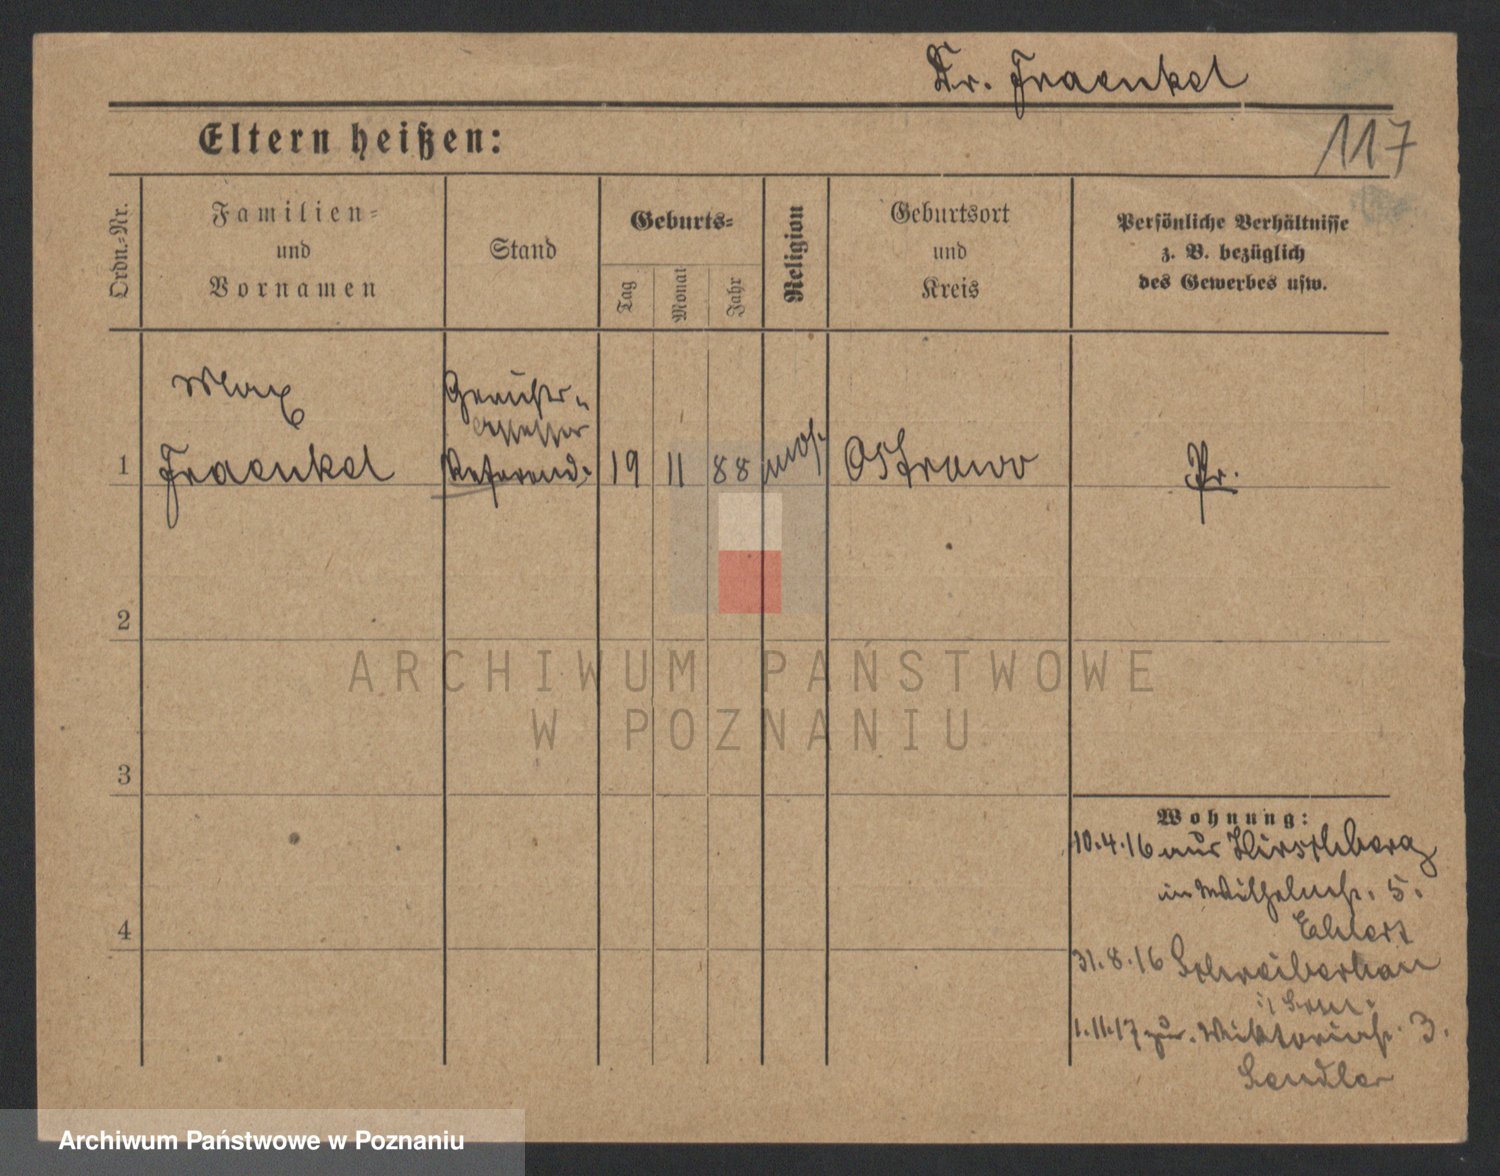 Dr. Fraenkel
Eltern heißen:
117
Ordn.=Nr.
Familien=
und
Vornamen
Stand
Geburts=
Tag
Monat
Jahr
Religion
Geburtsort
und
Kreis
Persönliche Verhältnisse
z. B. bezüglich
des Gewerbes usw.
Max
Gerichts=
assessor
1 Fraenkel Referend. 19 11 88 mos. Ostrowo Pr.
2
ARCHIWUM PAŃSTWOWE
W POZNANIU
3
Wohnung:
10.4.16 aus Hirschberg
in Wilhelmstr. 5.
Ehlert
4
31.8.16 Schreiberhau
1.11.17 zur. Viktoriastr. 3.
Sendler
Archiwum Państwowe w Poznaniu